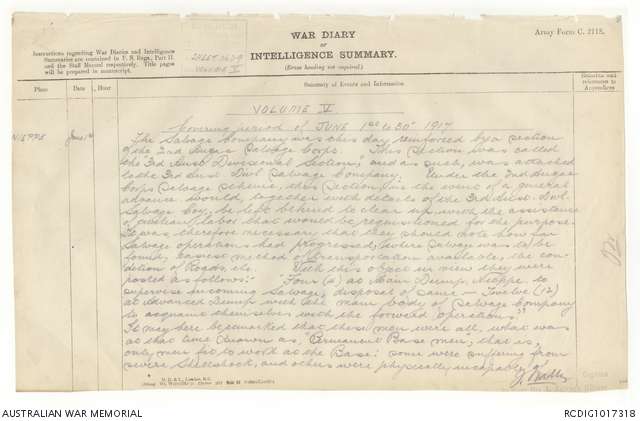 WAR DIARY
or
INTELLIGENCE SUMMARY.
(Erase heading not required.)
Army Form C. 2118.
Instructions regarding War Diaries and Intelligence
Summaries are contained in F. S. Regs., Part II.
and the Staff Manual respectively. Title pages
will be prepared in manuscript.
Place
Date
Hour
Summary of Events and Information
Remarks and
references to
Appendices
VOLUME V
Covering period of JUNE 1st to 30th 1917
NIEPPE June 1st
The Salvage Company was this day reinforced by a section
of the 2nd Anzac Salvage Corps. This Section was called
the 3rd Aust Divisional Section, and as such, was attached
to the 3rd Aust Divl Salvage Company. Under the 2nd Anzac
Corps Salvage scheme, this Section, in the event of a general
advance would, together with details of the 3rd Aust. Divl.
Salvage Coy, be left behind to clear up with the assistance
of civilian labor that would be requisitioned for the purpose.
It was therefore necessary that they should note how far
Salvage operations had progressed, where Salvage was to be
found, easiest method of transportation available, the con-
dition of Roads, etc. With this object in view they were
posted as follows:- "Four (4) at Main Dump, Nieppe to
supervise incoming Salvage, disposal of same — Twelve (12)
at Advanced Dump with the main body of Salvage Company
to acquaint themselves with the forward operations."
It may here be remarked that these men were all, what was
at that time known as, "Permanent Base men, that is,
only men fit to work at the Base: some were suffering from
severe Shellshock, and others were physically incapable of
AUSTRALIAN WAR MEMORIAL
RCDIG1017318